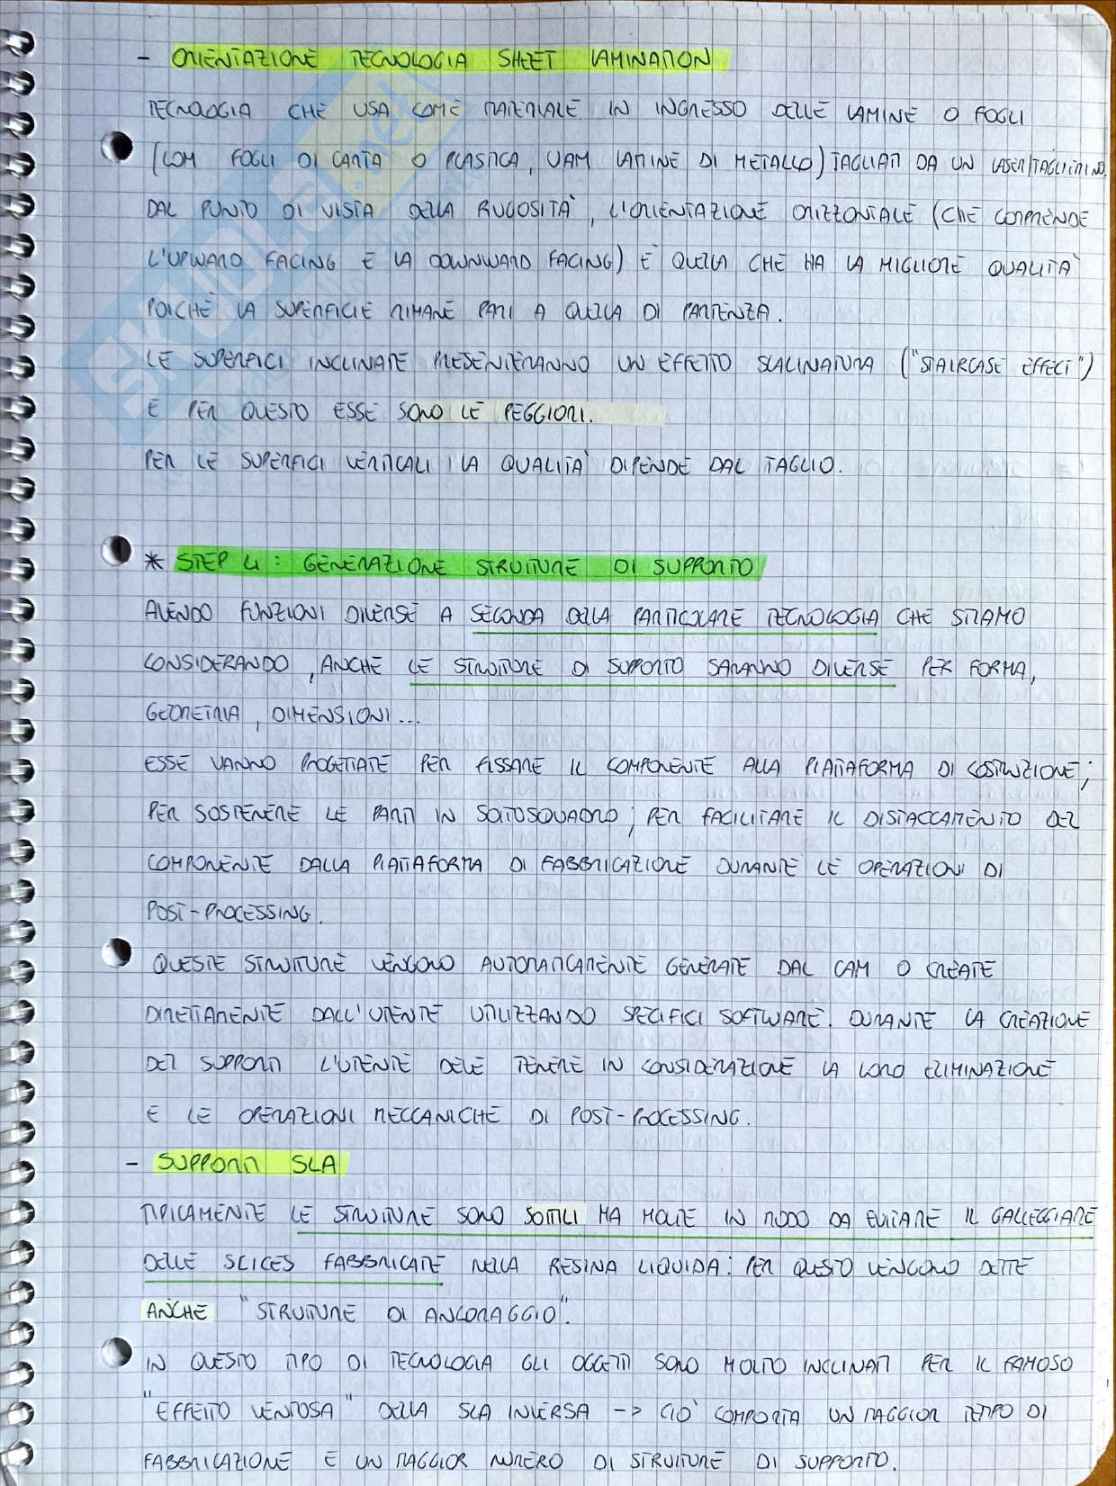 - ORIENTAZIONE TECNOLOGIA SHEET LAMINATION
TECNOLOGIA CHE USA COME MATERIALE IN INGRESSO DELLE LAMINE O FOGLI
(LOM FOGLI DI CARTA O PLASTICA, UAM LAMINE DI METALLO) TAGLIATI DA UN LASER/TAGLIERINO.
DAL PUNTO DI VISTA DELLA RUGOSITÀ, L'ORIENTAZIONE ORIZZONTALE (CHE COMPRENDE
L'UPWARD FACING E LA DOWNWARD FACING) È QUELLA CHE HA LA MIGLIORE QUALITÀ
POICHÉ LA SUPERFICIE RIMANE PARI A QUELLA DI PARTENZA.
LE SUPERFICI INCLINATE PRESENTERANNO UN EFFETTO SCALINATURA ("STAIRCASE EFFECT")
E PER QUESTO ESSE SONO LE PEGGIORI.
PER LE SUPERFICI VERTICALI, LA QUALITÀ DIPENDE DAL TAGLIO.
* STEP 4: GENERAZIONE STRUTTURE DI SUPPORTO
AVENDO FUNZIONI DIVERSE A SECONDA DELLA PARTICOLARE TECNOLOGIA CHE STIAMO
CONSIDERANDO, ANCHE LE STRUTTURE DI SUPPORTO SARANNO DIVERSE PER FORMA,
GEOMETRIA, DIMENSIONI...
ESSE VANNO PROGETTATE PER FISSARE IL COMPONENTE ALLA PIATTAFORMA DI COSTRUZIONE;
PER SOSTENERE LE PARTI IN SOTTOSQUADRO; PER FACILITARE IL DISTACCAMENTO DEL
COMPONENTE DALLA PIATTAFORMA DI FABBRICAZIONE DURANTE LE OPERAZIONI DI
POST-PROCESSING.
QUESTE STRUTTURE VENGONO AUTOMATICAMENTE GENERATE DAL CAM O CREATE
DIRETTAMENTE DALL'UTENTE UTILIZZANDO SPECIFICI SOFTWARE. DURANTE LA CREAZIONE
DEI SUPPORTI L'UTENTE DEVE TENERE IN CONSIDERAZIONE LA LORO ELIMINAZIONE
E LE OPERAZIONI MECCANICHE DI POST-PROCESSING.
- SUPPORTI SLA
TIPICAMENTE LE STRUTTURE SONO SOTTILI MA MOLTE IN MODO DA EVITARE IL GALLEGGIARE
DELLE SLICES FABBRICATE NELLA RESINA LIQUIDA: PER QUESTO VENGONO DETTE
ANCHE "STRUTTURE DI ANCORAGGIO".
IN QUESTO TIPO DI TECNOLOGIA GLI OGGETTI SONO MOLTO INCLINATI PER IL FAMOSO
"EFFETTO VENTOSA" DELLA SLA INVERSA -> CIÒ COMPORTA UN MAGGIOR TEMPO DI
FABBRICAZIONE E UN MAGGIOR NUMERO DI STRUTTURE DI SUPPORTO.